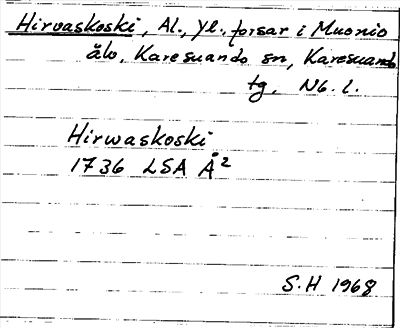 Hirvaskoski, Al., Yl., forsar i Muonio
älv, Karesuando sn, Karesuando
tg. Nb. l.
Hirwaskoski
1736 LSA Å2
S.H 1968